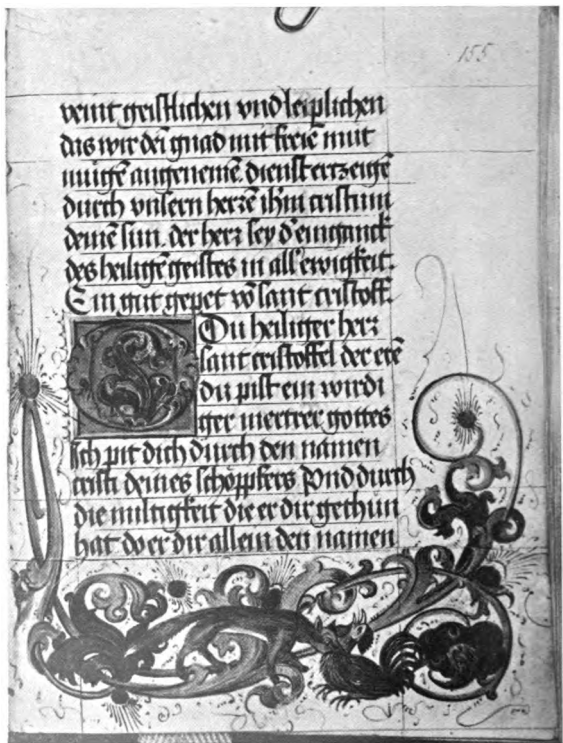 155
veint geistlichen vnd leiplichen
das wir dei gnad mit freiē mut
mügē angenemē dienst ertzeigē
durch vnsern herzē ih̄m cristum
deinē sun. der herz sey d' einganck
des heiligē geistes in all' ewigkeit.
Ein gut gepet vō sant cristoff.
O Du heiliger herz
sant cristoffel der erē
du pist ein wirdi
ger mertrer gottes
Ich pit dich durch den namen
cristi deines schöppfers Vnd durch
die miltigkeit die er dir gethun
hat do er dir allein den namen